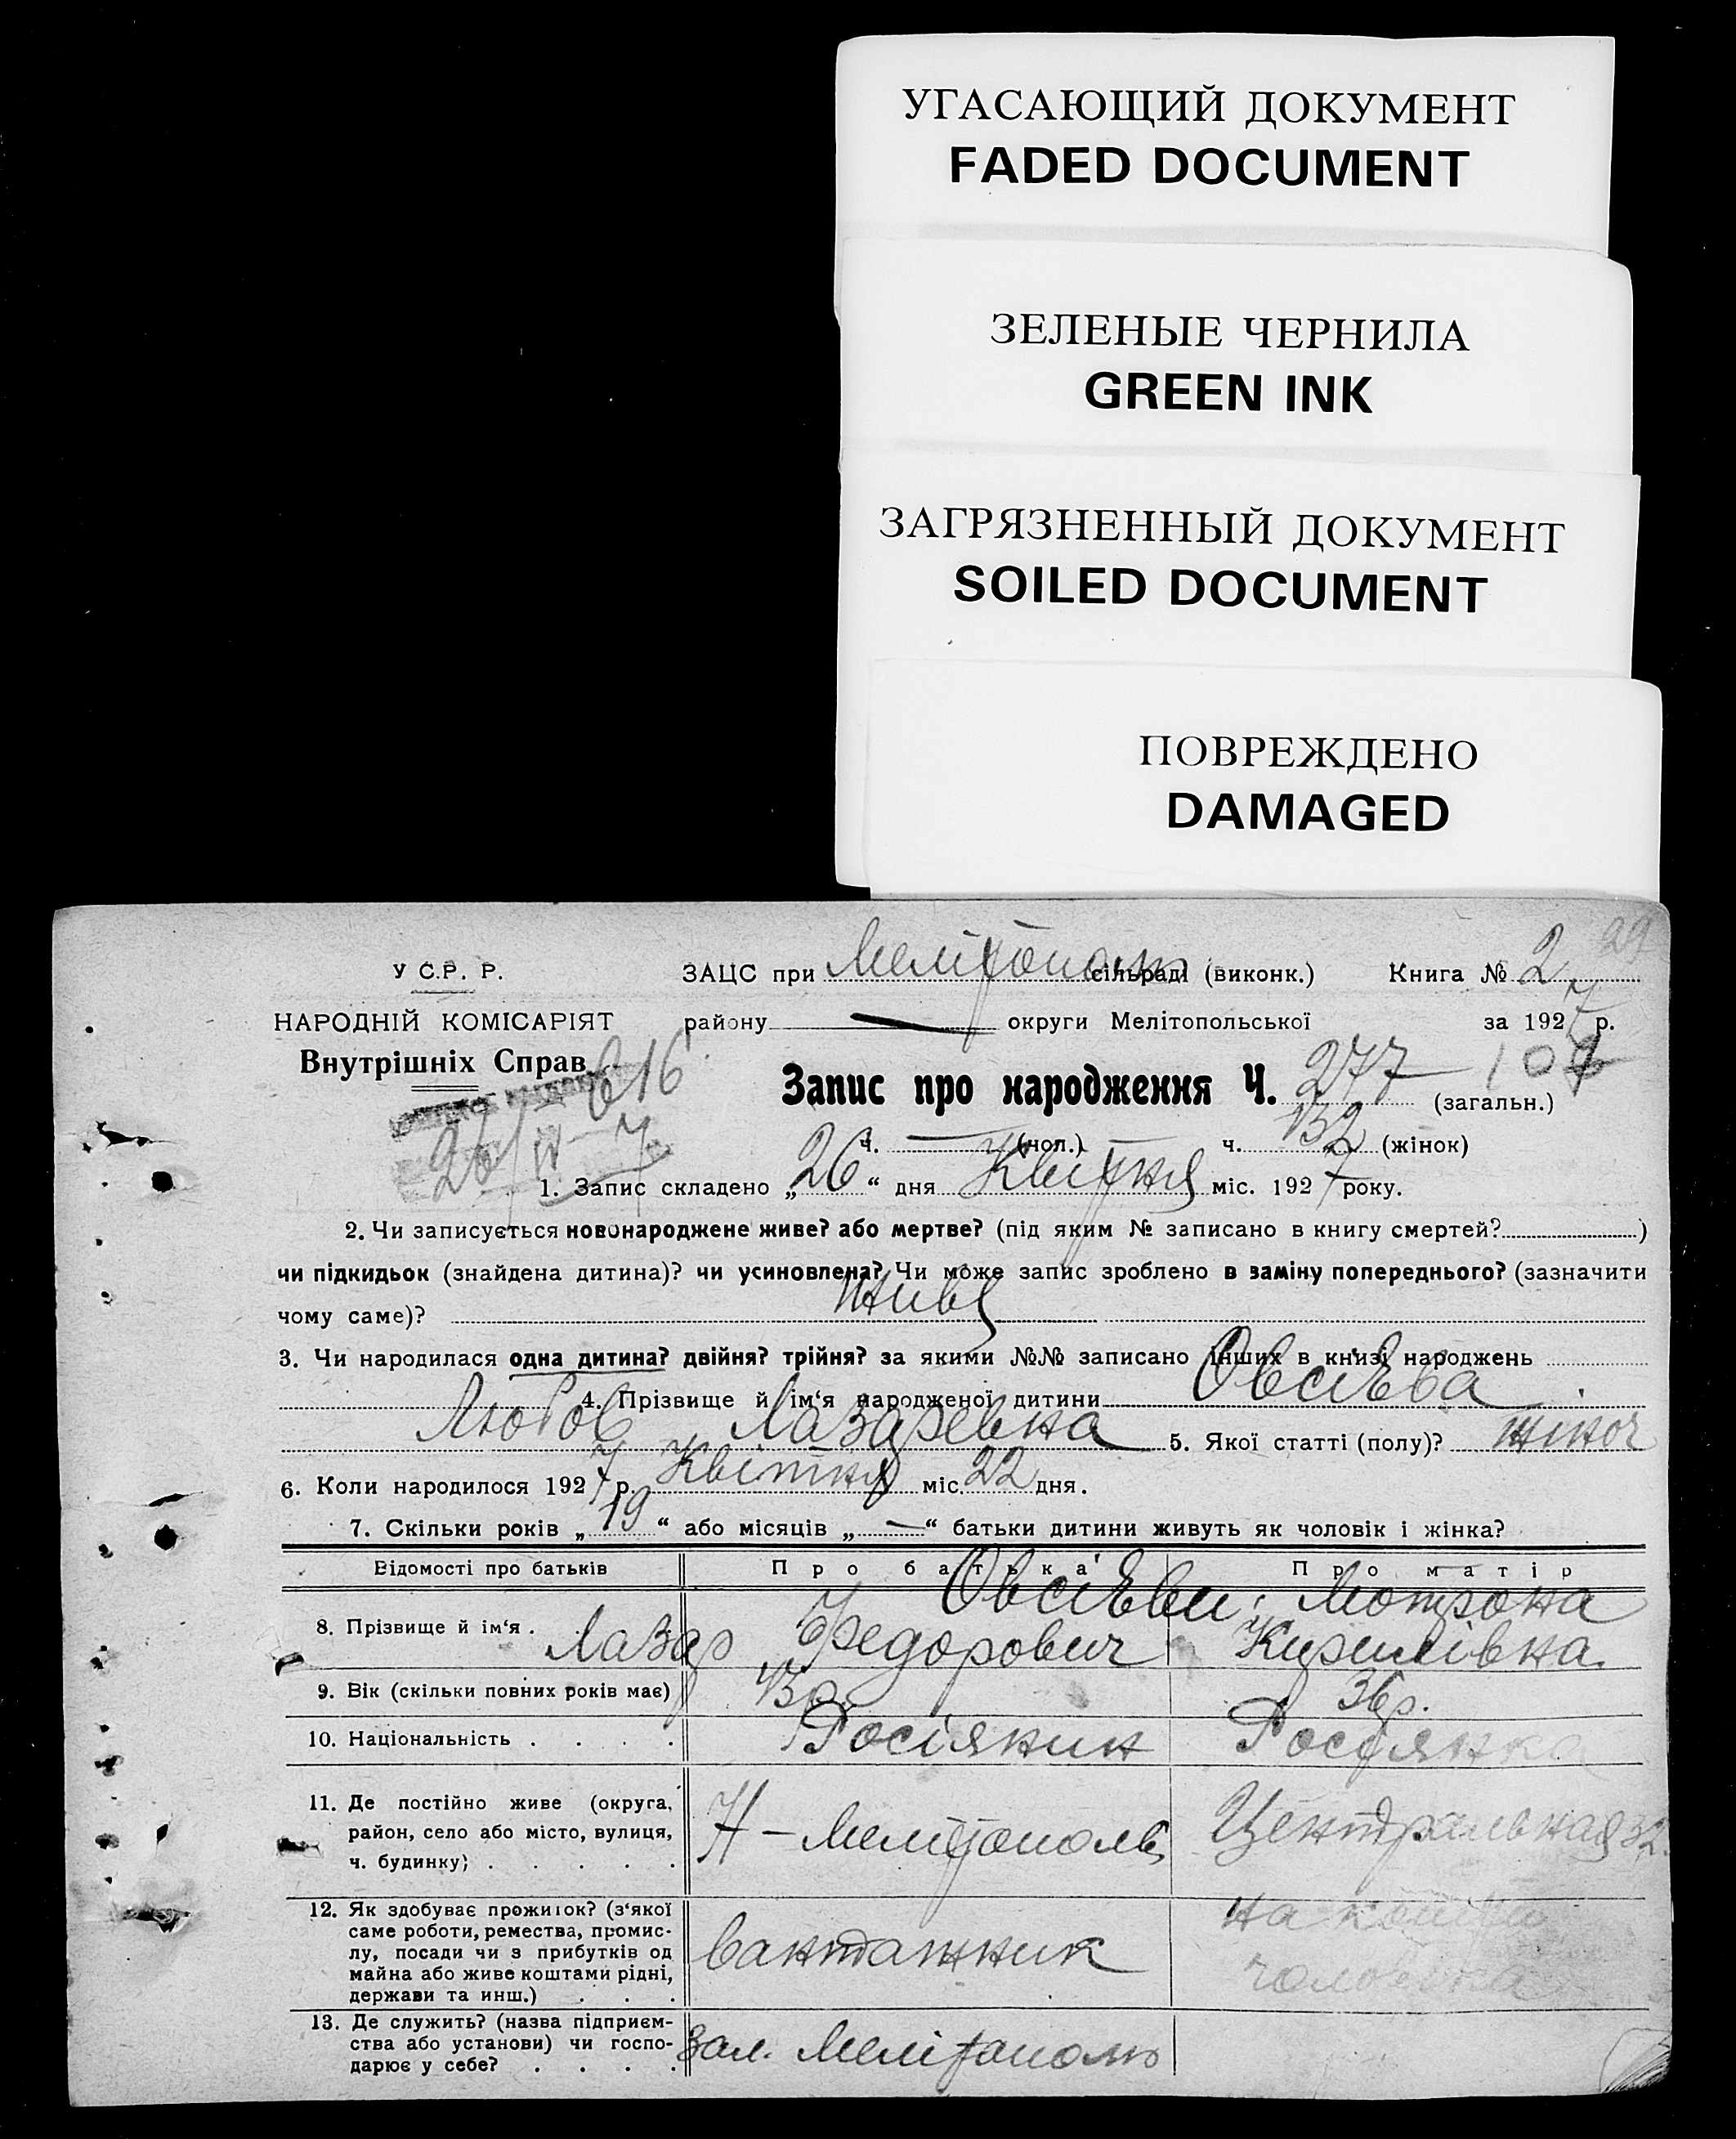 УГАСАЮЩИЙ ДОКУМЕНТ
FADED DOCUMENT
ЗЕЛЕНЫЕ ЧЕРНИЛА
GREEN INK
ЗАГРЯЗНЕННЫЙ ДОКУМЕНТ
SOILED DOCUMENT
ПОВРЕЖДЕНО
DAMAGED
29
У С.Р. Р. ЗАЦС при Мелітополь сільраді (виконк.) Книга № 2
НАРОДНІЙ КОМІСАРІЯТ району — округи Мелітопольської за 1927 р.
Внутрішніх Справ 616
Запис про народження Ч. 277 (загальн.)
ч. — (чол.) — ч. 132 (жінок)
26/IV 7
1. Запис складено „26“ дня Квітня міс. 1927 року.
2. Чи записується новонароджене живе? або мертве? (під яким № записано в книгу смертей? )
чи підкидьок (знайдена дитина)? чи усиновлена? Чи може запис зроблено в заміну попереднього? (зазначити
чому саме)? Живе
3. Чи народилася одна дитина? двійня? трійня? за якими №№ записано інших в книзі народжень
4. Прізвище й ім‘я народженої дитини Овсіева
Любов Лазаревна 5. Якої статті (полу)? жіноч
6. Коли народилося 1927 р. Квітня міс. 22 дня.
7. Скільки років „19“ або місяців „—“ батьки дитини живуть як чоловік і жінка?
Відомості про батьків Про батька Про матір
8. Прізвище й ім‘я . Овсіеви: Мотрона
Лазар Федорович Кирилівна
9. Вік (скільки повних років має) 36р.
10. Національність . . . . Росіянин Росіянка
11. Де постійно живе (округа, район, село або місто, вулиця, ч. будинку) . . . . . Н-Мелітополь, Центральная 32.
12. Як здобуває прожиток? (з‘якої саме роботи, ремества, промислу, посади чи з прибутків од майна або живе коштами рідні, держави та инш.) . . . вантажник на кошти
чоловіка
13. Де служить? (назва підприємства або установи) чи господарює у себе? . . . . Зал. Мелітополь